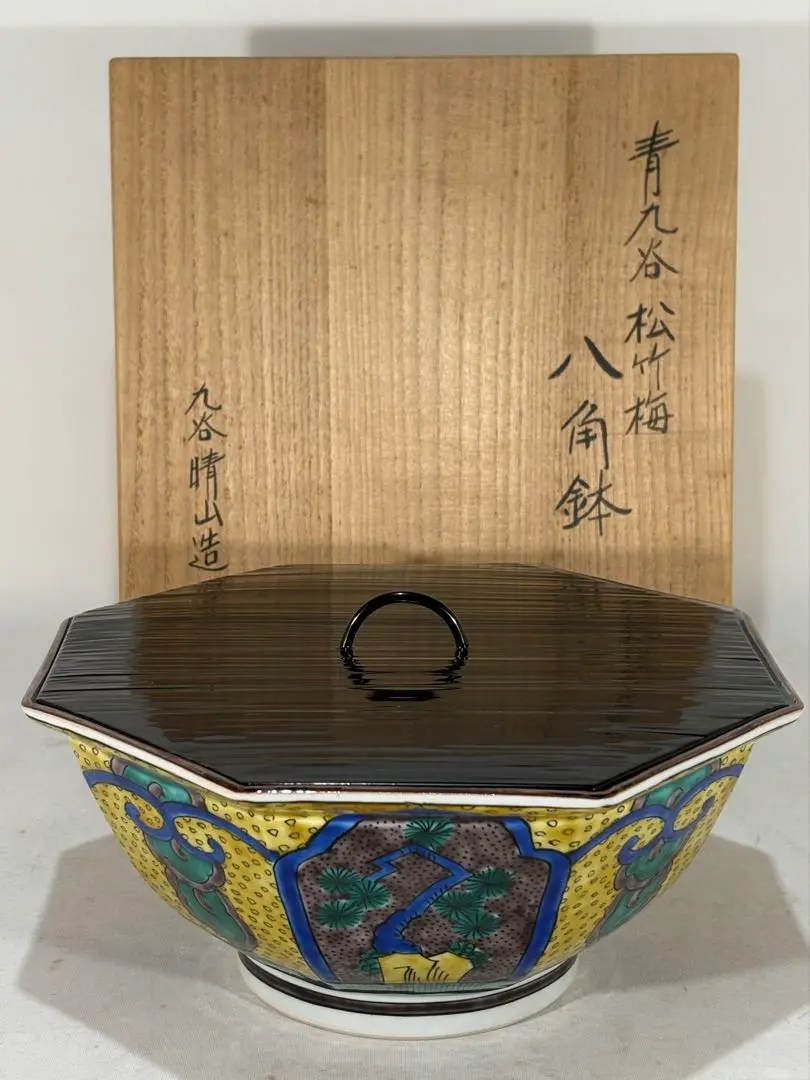 青九谷 松竹梅
八角鉢
九谷晴山造